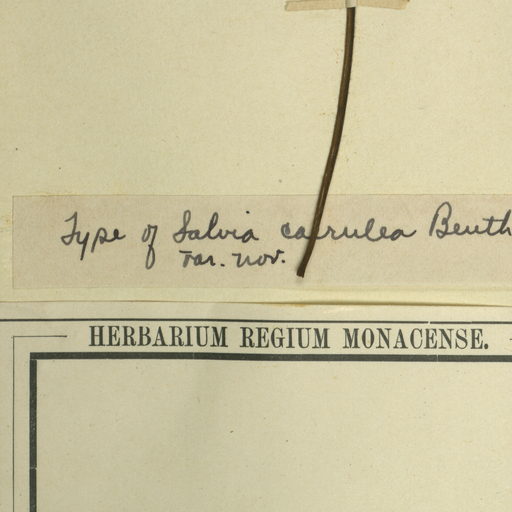 Type of Salvia caerulea Benth
var. nov.
HERBARIUM REGIUM MONACENSE.